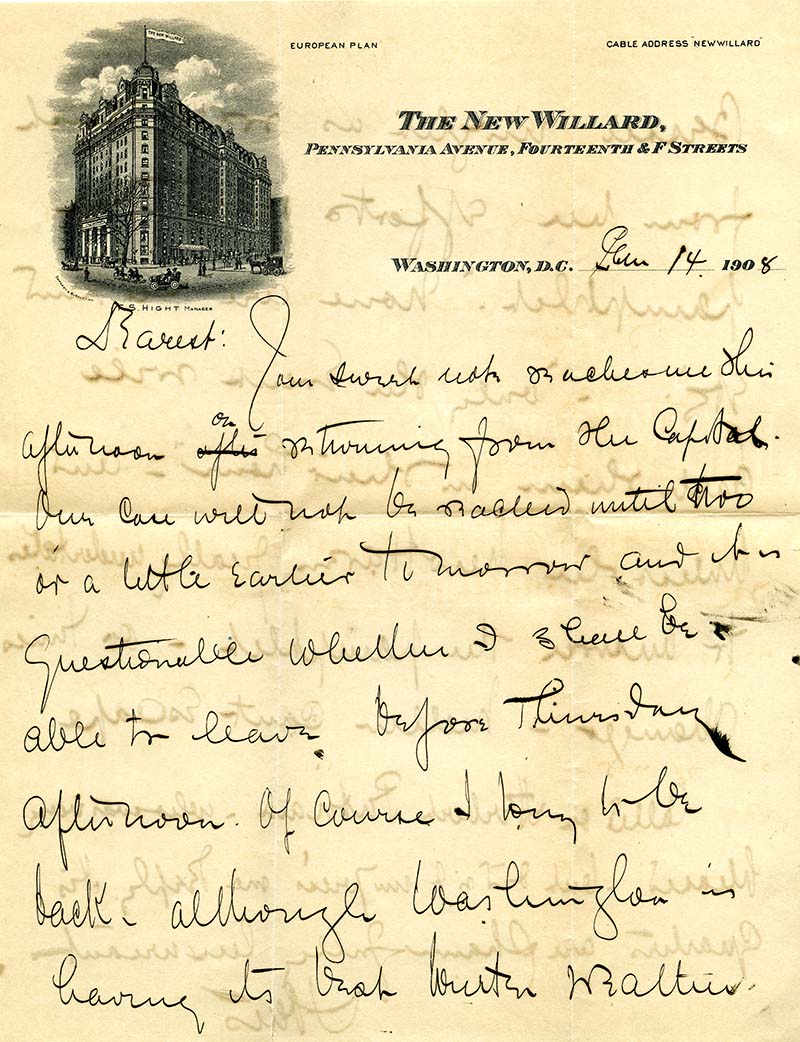 THE NEW WILLARD
EUROPEAN PLAN
CABLE ADDRESS "NEWWILLARD"
THE NEW WILLARD,
PENNSYLVANIA AVENUE, FOURTEENTH & F STREETS
WASHINGTON, D.C. 14 1908
F. S. HIGHT MANAGER
Dearest:
Your sweet note reaches me this
afternoon after on returning from the Capital.
Our case will not be reached until two
or a little earlier tomorrow and it is
questionable whether I shall be
able to leave before Thursday
afternoon. Of course I long to be
back - although Washington is
having its best winter weather.